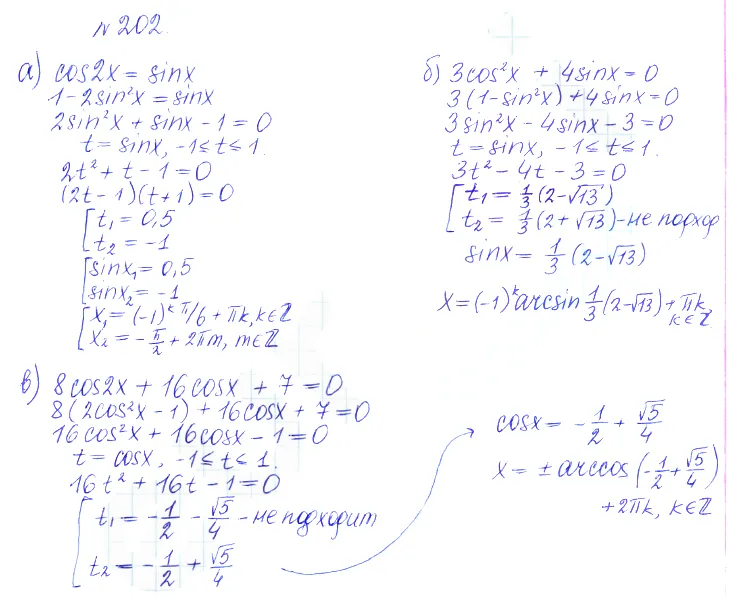 №202.
а) cos2x = sinx
1-2sin²x = sinx
2sin²x + sinx - 1 = 0
t = sinx, -1≤t≤1.
2t² + t - 1 = 0
(2t-1)(t+1) = 0
[t₁ = 0,5
[t₂ = -1
[sinx₁ = 0,5
[sinx₂ = -1
[x₁ = (-1)ᵏ π/6 + πk, k∈ℤ
[x₂ = -π/2 + 2πm, m∈ℤ
б) 3cos²x + 4sinx = 0
3(1-sin²x) + 4sinx = 0
3sin²x - 4sinx - 3 = 0
t = sinx, -1≤t≤1.
3t² - 4t - 3 = 0
[t₁ = 1/3 (2-√13)
[t₂ = 1/3 (2+√13) - не подход
sinx = 1/3 (2-√13)
x = (-1)ᵏ arcsin 1/3 (2-√13) + πk,
k∈ℤ
в) 8cos2x + 16cosx + 7 = 0
8(2cos²x - 1) + 16cosx + 7 = 0
16cos²x + 16cosx - 1 = 0
t = cosx, -1≤t≤1.
16t² + 16t - 1 = 0
[t₁ = -1/2 - √5/4 - не подходит
[t₂ = -1/2 + √5/4
cosx = -1/2 + √5/4
x = ±arccos(-1/2 + √5/4)
+2πk, k∈ℤ